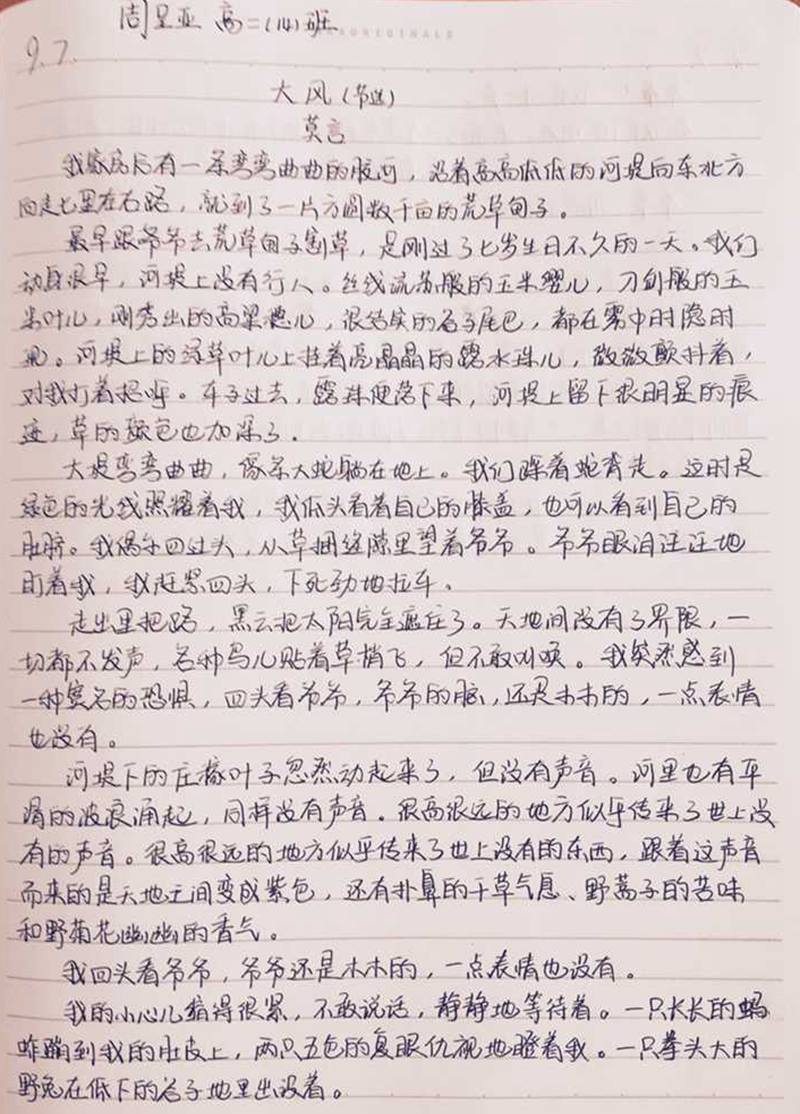 周里亚 高二(14)班
9.7.
大风(节选)
莫言
我家房后有一条弯弯曲曲的胶河，沿着高高低低的河堤向东北方
向走七里左右路，就到了一片方圆数千亩的荒草甸子。
最早跟爷爷去荒草甸子割草，是刚过了七岁生日不久的一天。我们
动身很早，河堤上没有行人。丝线流苏般的玉米缨儿，刀剑般的玉
米叶儿，刚秀出的高粱穗儿，很结实的谷子尾巴，都在雾中时隐时
现。河堤上的绿草叶儿上挂着亮晶晶的露水珠儿，微微颤抖着，
对我打着招呼。车子过去，露珠便落下来，河堤上留下很明显的痕
迹，草的颜色也加深了.
大堤弯弯曲曲，像条大蛇躺在地上。我们踩着蛇背走。这时是
绿色的光线照耀着我，我低头看着自己的膝盖，也可以看到自己的
肚脐。我偶尔回过头，从草捆缝隙里望着爷爷。爷爷眼泪汪汪地
盯着我，我赶紧回头，下死劲地拉车.
走出里把路，黑云把太阳完全遮住了。天地间没有了界限，一
切都不发声，各种鸟儿贴着草梢飞，但不敢叫唤。我突然感到
一种莫名的恐惧，回头看爷爷，爷爷的脸，还是木木的，一点表情
也没有。
河堤下的庄稼叶子忽然动起来了，但没有声音。河里也有平
滑的波浪涌起，同样没有声音。很高很远的地方似乎传来了世上没
有的声音。很高很远的地方似乎传来了世上没有的东西，跟着这声音
而来的是天地之间变成紫色，还有扑鼻的干草气息、野蒿子的苦味
和野菊花幽幽的香气。
我回头看爷爷，爷爷还是木木的，一点表情也没有。
我的小心儿缩得很紧，不敢说话，静静地等待着。一只长长的蚂
蚱蹦到我的肚皮上，两只五色的复眼仇视地瞪着我。一只拳头大的
野兔在低下的谷子地里出没着。